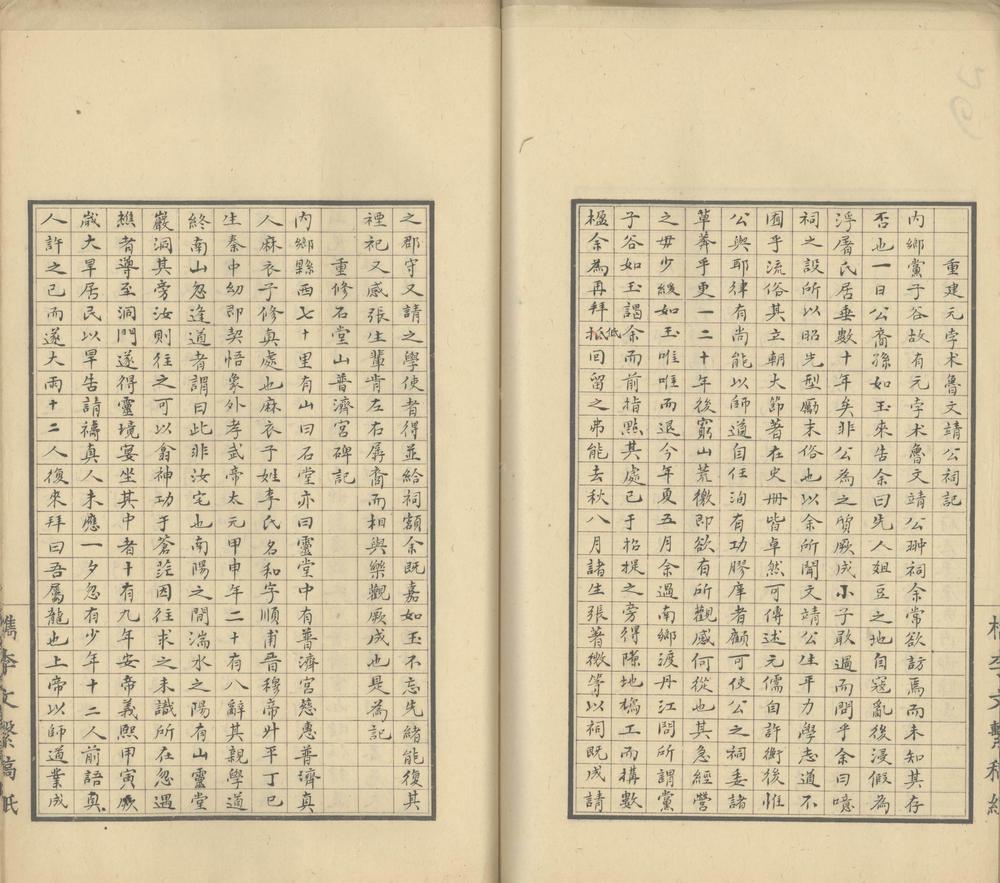 重建元孛术魯文靖公祠記
内鄉黨子谷故有元孛术魯文靖公翀祠余常欲訪焉而未知其存
否也一日公裔孫如玉來告余曰先人俎豆之地自寇亂後浸假為
浮屠氏居垂數十年矣非公為之質厥成小子敢過而問乎余曰噫
祠之設所以昭先型勵末俗也以余所聞文靖公生平力學志道不
囿乎流俗其立朝大節著在史册皆卓然可傳述元儒自許衡後惟
公與耶律有尚能以師道自任洵有功膠庠者顧可使公之祠委諸
草莽乎更一二十年後窮山荒徼即欲有所觀感何從也其急經營
之毋少緩如玉唯唯而退今年夏五月余過南鄉渡丹江問所謂黨
子谷如玉謁余而前指點其處已于招提之旁得隙地橋工而構數
楹余為再拜抵回留之弗能去秋八月諸生張著微等以祠既成請
低
之郡守又請之學使者得並給祠額余既嘉如玉不忘先緒能復其
禋祀又感張生輩肯左右孱裔而相與樂觀厥成也是為記
重修石堂山普濟宮碑記
内鄉縣西七十里有山曰石堂亦曰靈堂中有普濟宮慈惠普濟真
人麻衣子修真處也麻衣子姓李氏名和字順甫晉穆帝升平丁巳
生秦中幼即契悟象外孝武帝太元甲申年二十有八辭其親學道
終南山忽逢道者謂曰此非汝宅也南陽之間湍水之陽有山靈堂
巖洞其旁汝則往之可以翕神功于蒼茫因往求之未識所在忽遇
樵者導至洞門遂得靈境宴坐其中者十有九年安帝義熙甲寅厥
歲大旱居民以旱告請禱真人未應一夕忽有少年十二人前語真
人許之已而遂大雨十二人復來拜曰吾屬龍也上帝以師道業成
檇李文繫稿紙